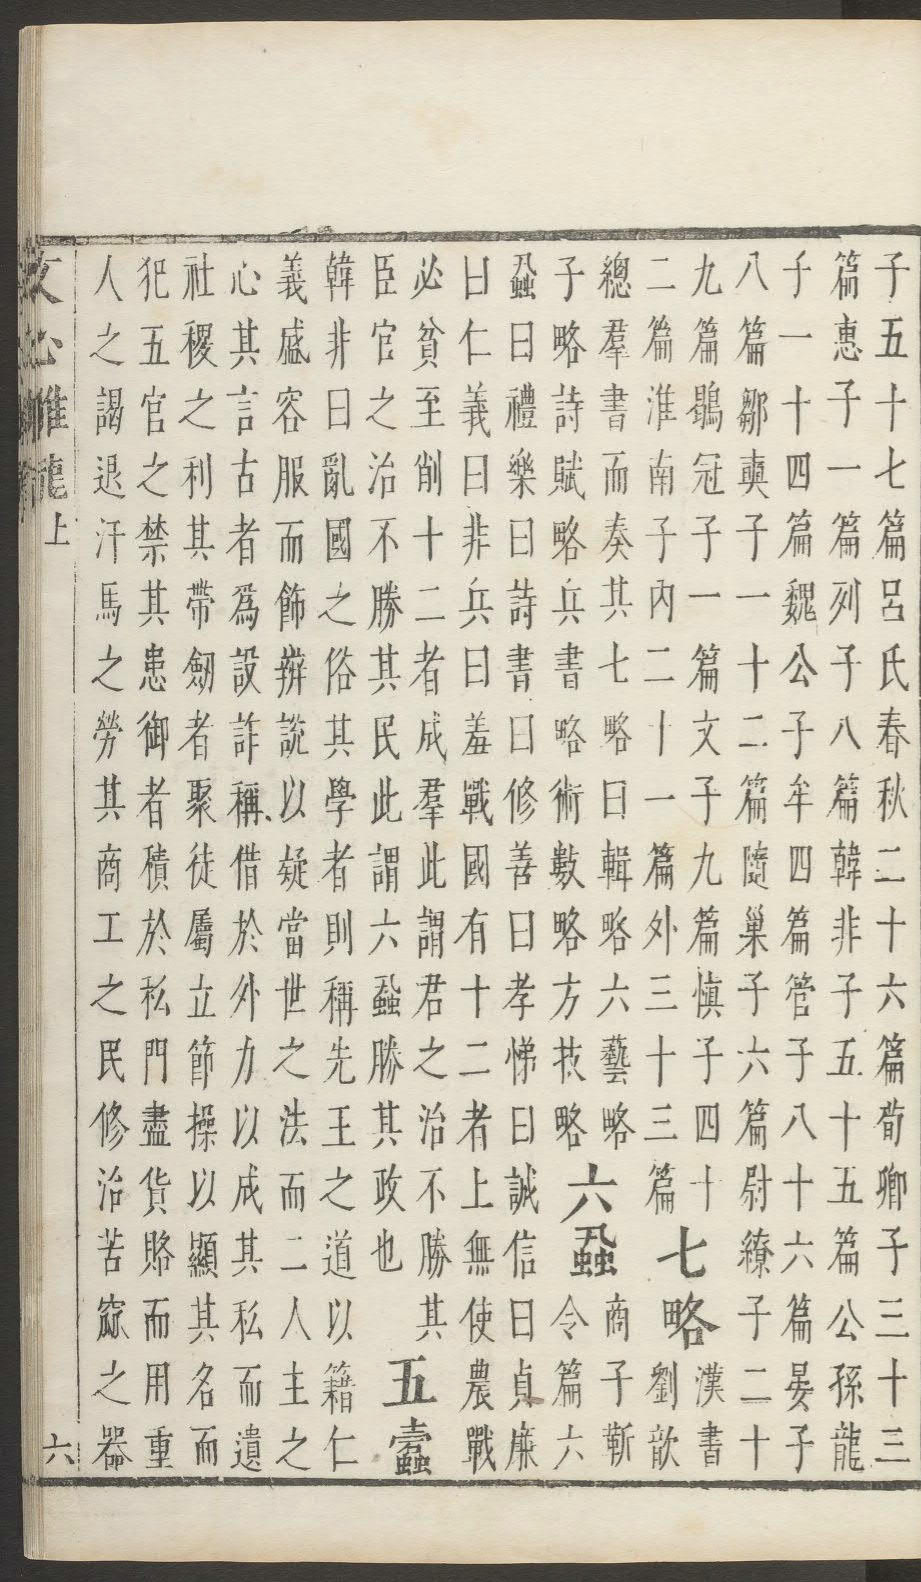 子五十七篇呂氏春秋二十六篇荀卿子三十三
篇惠子一篇列子八篇韓非子五十五篇公孫龍
子一十四篇魏公子牟四篇管子八十六篇晏子
八篇鄒奭子一十二篇隨巢子六篇尉繚子二十
九篇鶡冠子一篇文子九篇慎子四十
二篇淮南子內二十一篇外三十三篇
七略
漢書
劉歆
總羣書而奏其七略曰輯略六藝略
子略詩賦略兵書略術數略方技略
六蝨
商子靳
令篇六
蝨曰禮樂曰詩書曰修善曰孝悌曰誠信曰貞廉
曰仁義曰非兵曰羞戰國有十二者上無使農戰
必貧至削十二者成羣此謂君之治不勝其
臣官之治不勝其民此謂六蝨勝其政也
五蠹
韓非曰亂國之俗其學者則稱先王之道以籍仁
義盛容服而飾辨說以疑當世之法而二人主之
心其言古者爲設詐稱借於外力以成其私而遺
社稷之利其帶劒者聚徒屬立節操以顯其名而
犯五官之禁其患御者積於私門盡貨賂而用重
人之謁退汗馬之勞其商工之民修治苦窳之器
文心雕龍上 六